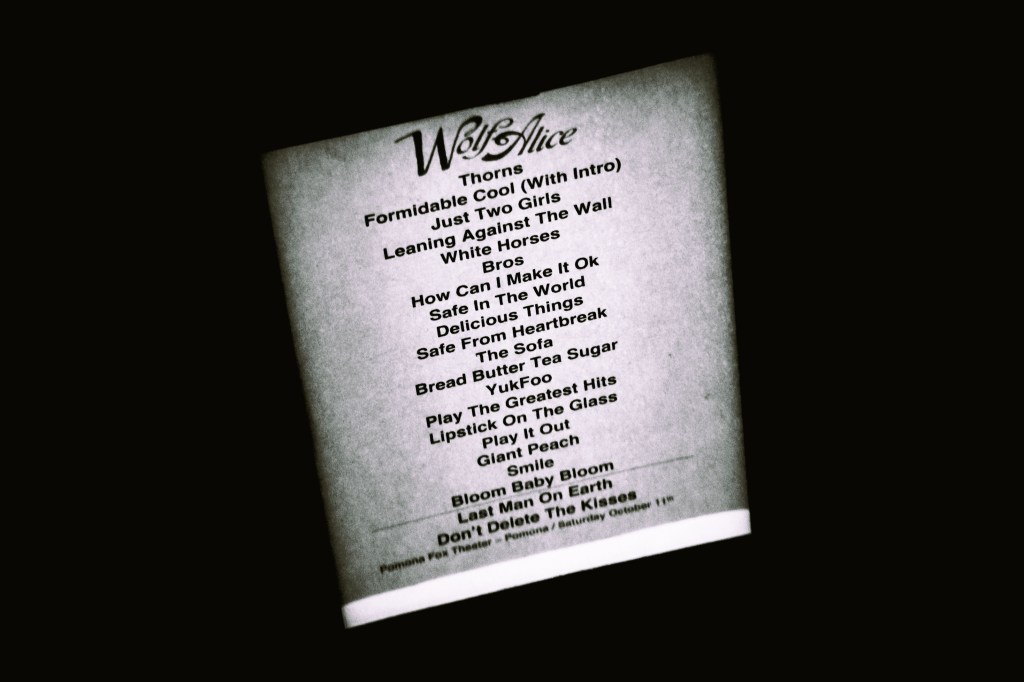 Wolf Alice
Thorns
Formidable Cool (With Intro)
Just Two Girls
Leaning Against The Wall
White Horses
Bros
How Can I Make It Ok
Safe In The World
Delicious Things
Safe From Heartbreak
The Sofa
Bread Butter Tea Sugar
YukFoo
Play The Greatest Hits
Lipstick On The Glass
Play It Out
Giant Peach
Smile
Bloom Baby Bloom
Last Man On Earth
Don't Delete The Kisses
Pomona Fox Theater – Pomona / Saturday October 11th